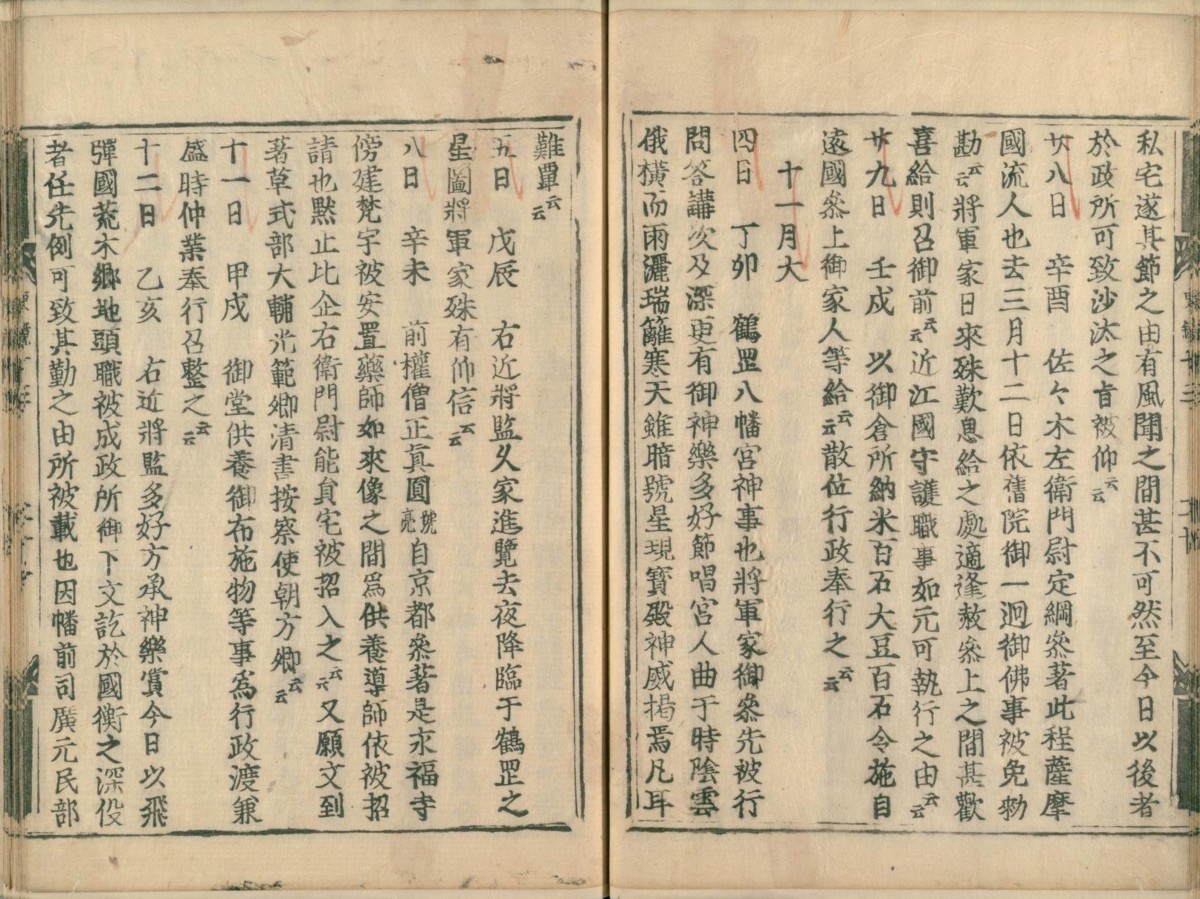 私宅遂其節之由有風聞之間甚不可然至今日以後者
於政所可致沙汰之旨被仰云云
廿八日 辛酉 佐々木左衛門尉定綱參著此程薩摩
國流人也去三月十二日依舊院御一廻御佛事被免勅
勘云云將軍家日來殊歎息給之處適逢赦參上之間甚歡
喜給則召御前云云近江國守護職事如元可執行之由云云
廿九日 壬戌 以御倉所納米百石大豆百石令施自
遠國參上御家人等給云云散位行政奉行之云云
十一月大
四日 丁卯 鶴罡八幡宮神事也將軍家御參先被行
問答講次及深更有御神樂多好節唱宮人曲于時陰雲
俄橫而雨灑瑞籬寒天雖暗號星現寶殿神威揭焉凡耳
難覃云云
五日 戊辰 右近將監久家進覽去夜降臨于鶴罡之
星圖將軍家殊有仰信云云
八日 辛未 前權僧正真圓號亮自京都參著是永福寺
傍建梵宇被安置藥師如來像之間爲供養導師依被招
請也點止比企右衛門尉能員宅被招入之云云又願文到
著草式部大輔光範卿清書按察使朝方卿云云
十一日 甲戌 御堂供養御布施物等事爲行政渡兼
盛時仲業奉行召整之云云
十二日 乙亥 右近將監多好方承神樂賞今日以飛
彈國荒木郷地頭職被成政所御下文訖於國衡之深役
者任先例可致其勤之由所被載也因幡前司廣元民部